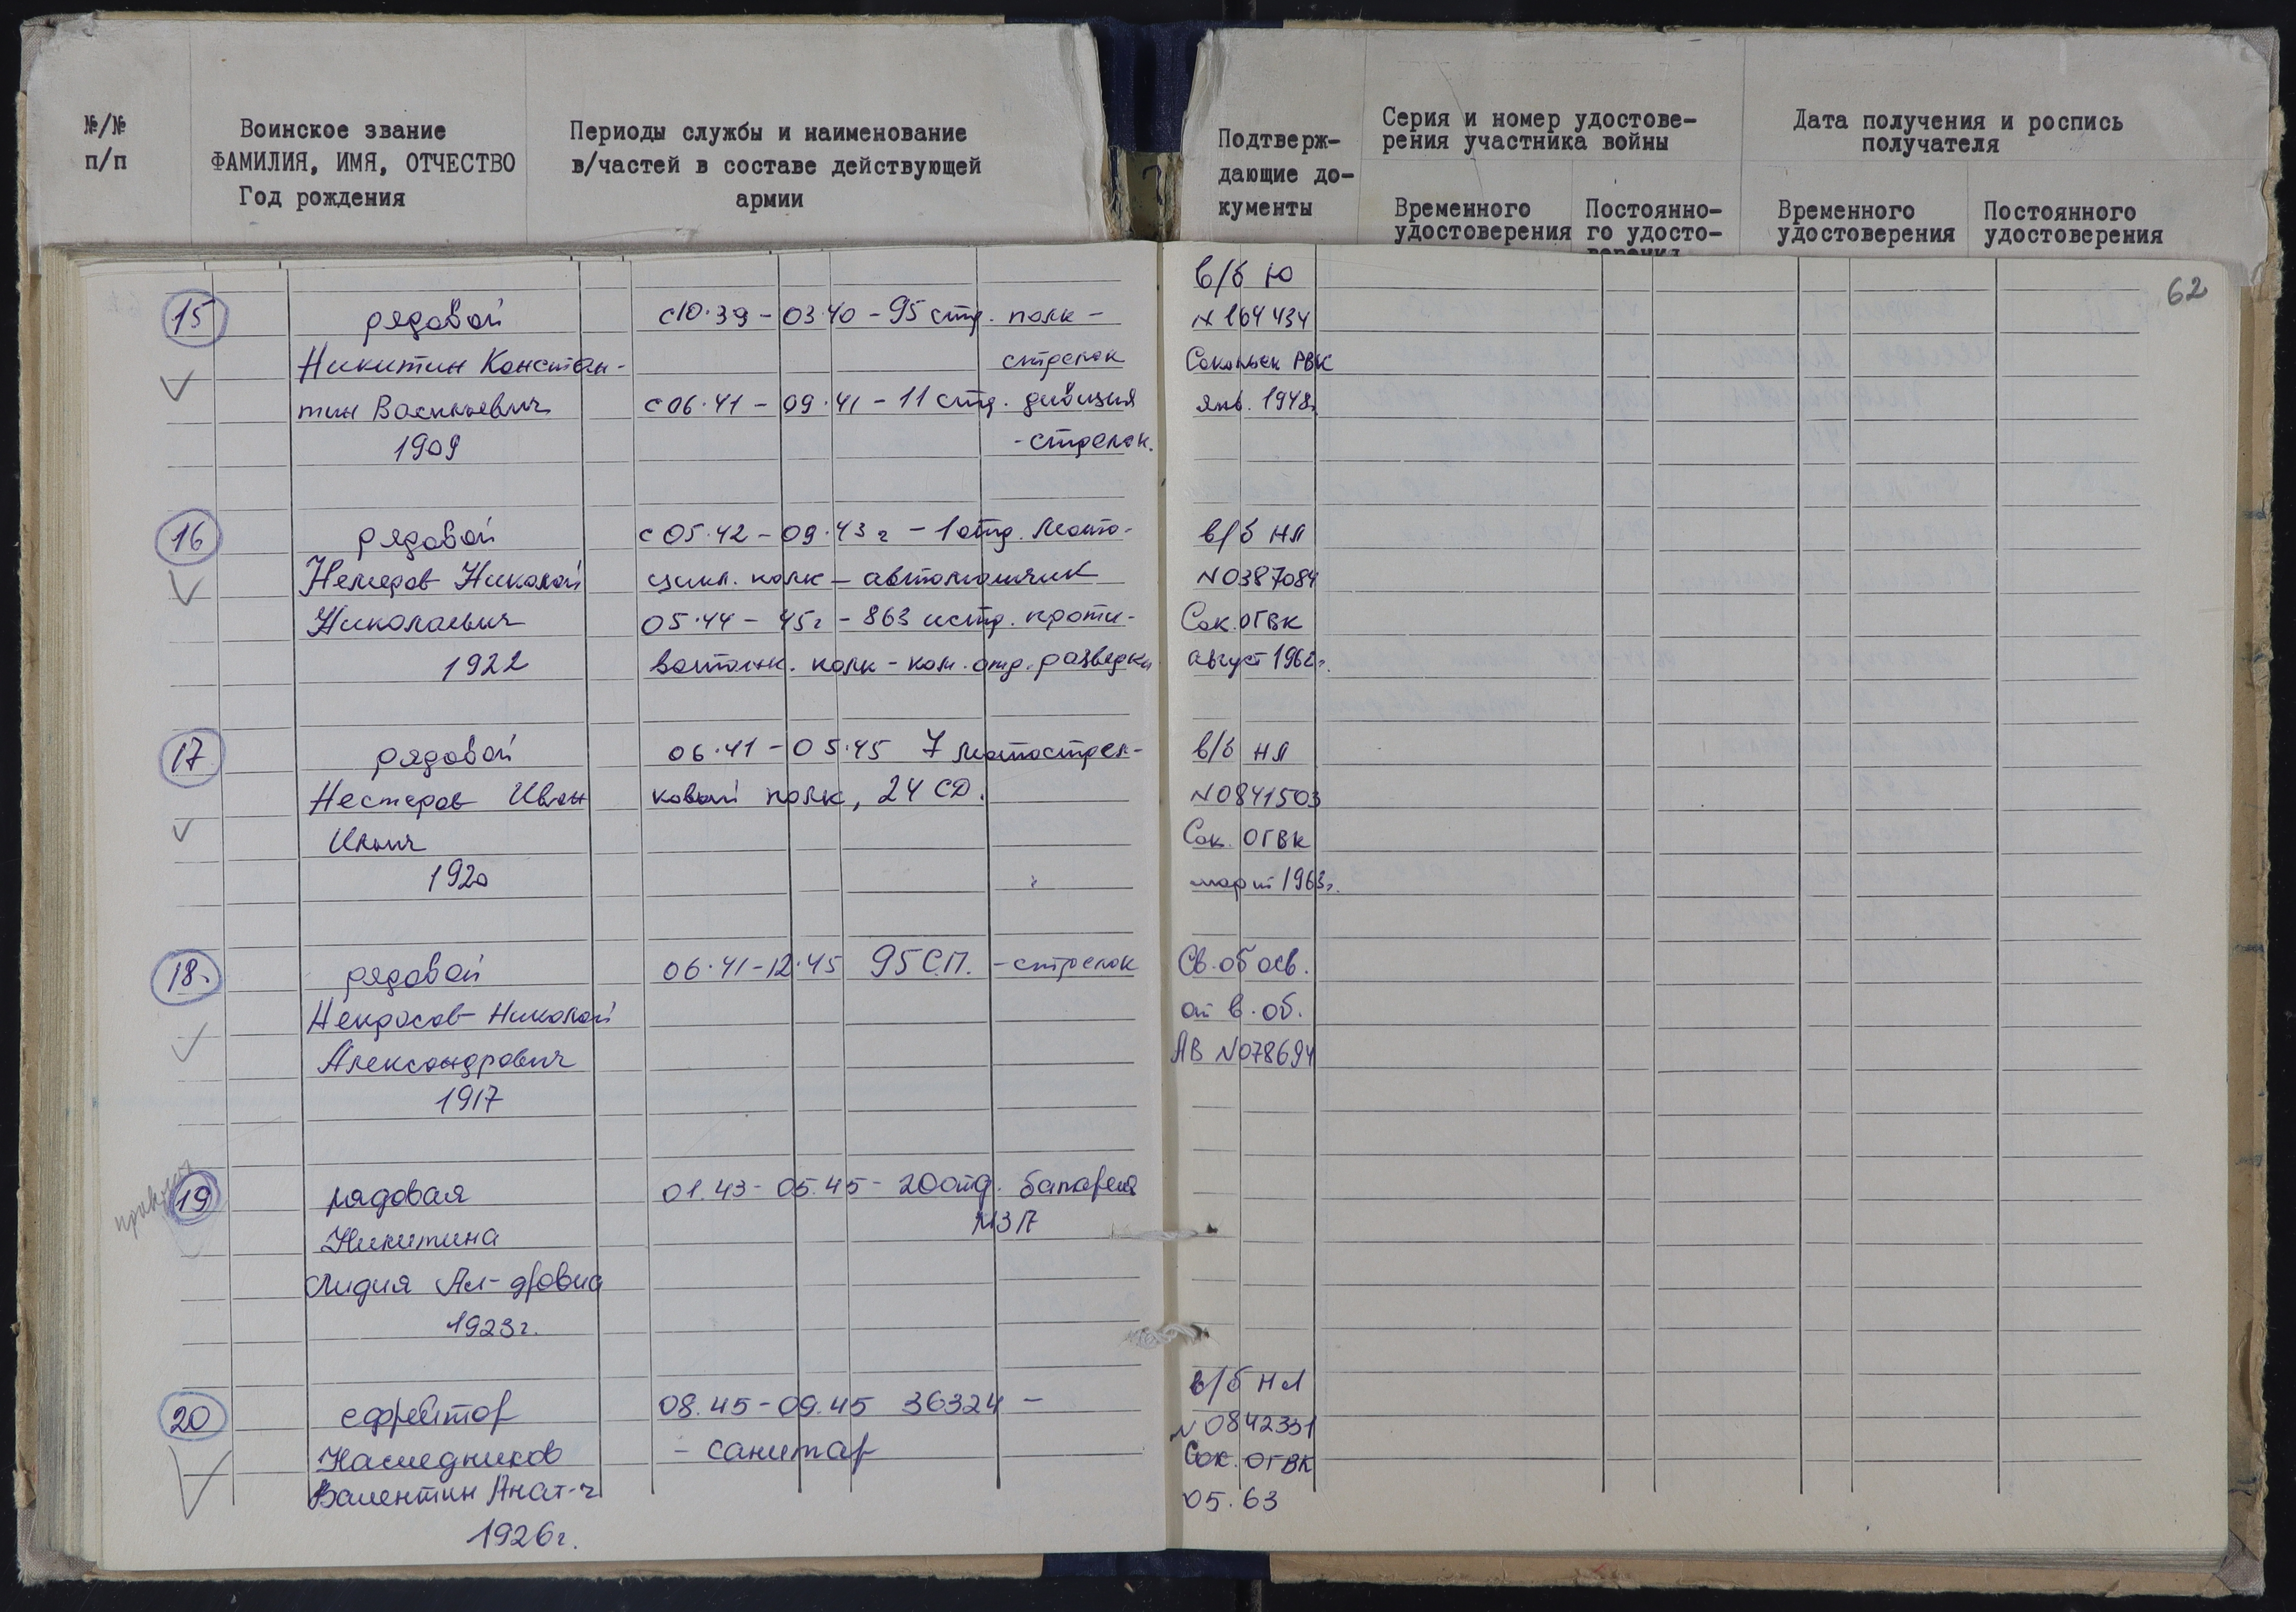 №/№ п/п
Воинское звание
ФАМИЛИЯ, ИМЯ, ОТЧЕСТВО
Год рождения
Периоды службы и наименование
в/частей в составе действующей
армии
Подтверж-
дающие до-
кументы
Серия и номер удостове-
рения участника войны
Временного
удостоверения
Постоянно-
го удосто-
верения
Дата получения и роспись
получателя
Временного
удостоверения
Постоянного
удостоверения
62
15
рядовой
Никитин Констан-
тин Васильевич
1909
с 10.39 - 03.40 - 95 стр. полк -
стрелок
с 06.41 - 09.41 - 11 стр. дивизия
- стрелок.
в/б Ю
N 164434
Сокольск РВК
янв. 1948г
16
рядовой
Немеров Николай
Николаевич
1922
с 05.42 - 09.43 г - 1 отд. мото-
цикл. полк - автоматчик
05.44 - 45г - 863 истр. проти-
вотанк. полк - ком. отд. разведки
в/б НЛ
N0387084
Сок. ОГВК
август 1962г.
17
рядовой
Нестеров Иван
Ильич
1920
06.41 - 05.45 7 мотострел-
ковый полк, 24 СД.
в/б НЛ
N0841503
Сок. ОГВК
март 1963г.
18.
рядовой
Некрасов Николай
Александрович
1917
06.41-12.45 95 С.П. - стрелок
Св. об осв.
от в. об.
АВ N078694
19
рядовая
Никитина
Лидия Ал-дровна
1923г.
01.43 - 05.45 - 20 отд. батарея
МЗА
20
ефрейтор
Наследников
Валентин Анат-ч
1926г.
08.45 - 09.45 36324 -
- санитар
в/б НЛ
N 0842331
Сок. ОГВК
05.63